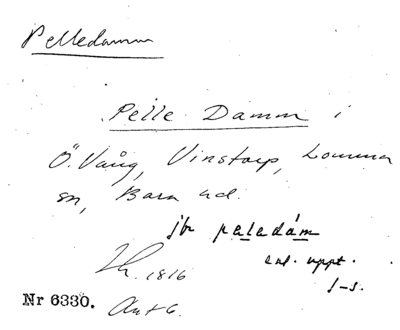 Pelledamm
Pelle Damm i
Ö. Vång, Vinstorp, Lomma
sn, Bara hd.
jfr paladám
enl. uppt.
f-s.
1816
Nr 6330. Ant 6.